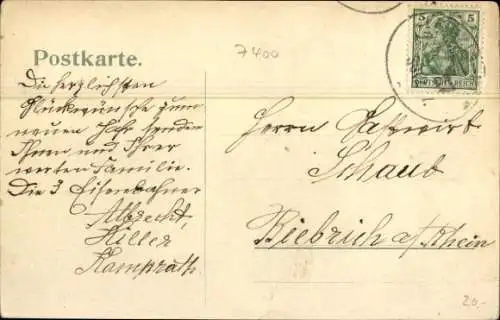 Postkarte.
7400
5 5
DEUTSCHES REICH
Die herzlichsten
Glückwünsche zum
neuen Jahr senden
Ihnen und Ihrer
werten Familie.
Die 3 Eisenbahner
Albrecht,
Hiller
Kamprath
Herrn Gastwirt
Schaub
Biebrich a/Rhein
20.-